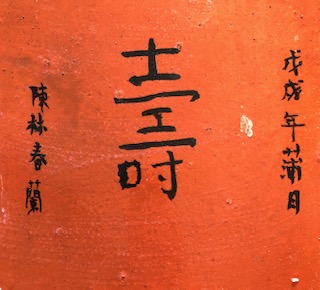 戊戌年蒲月
壽
陳林春蘭